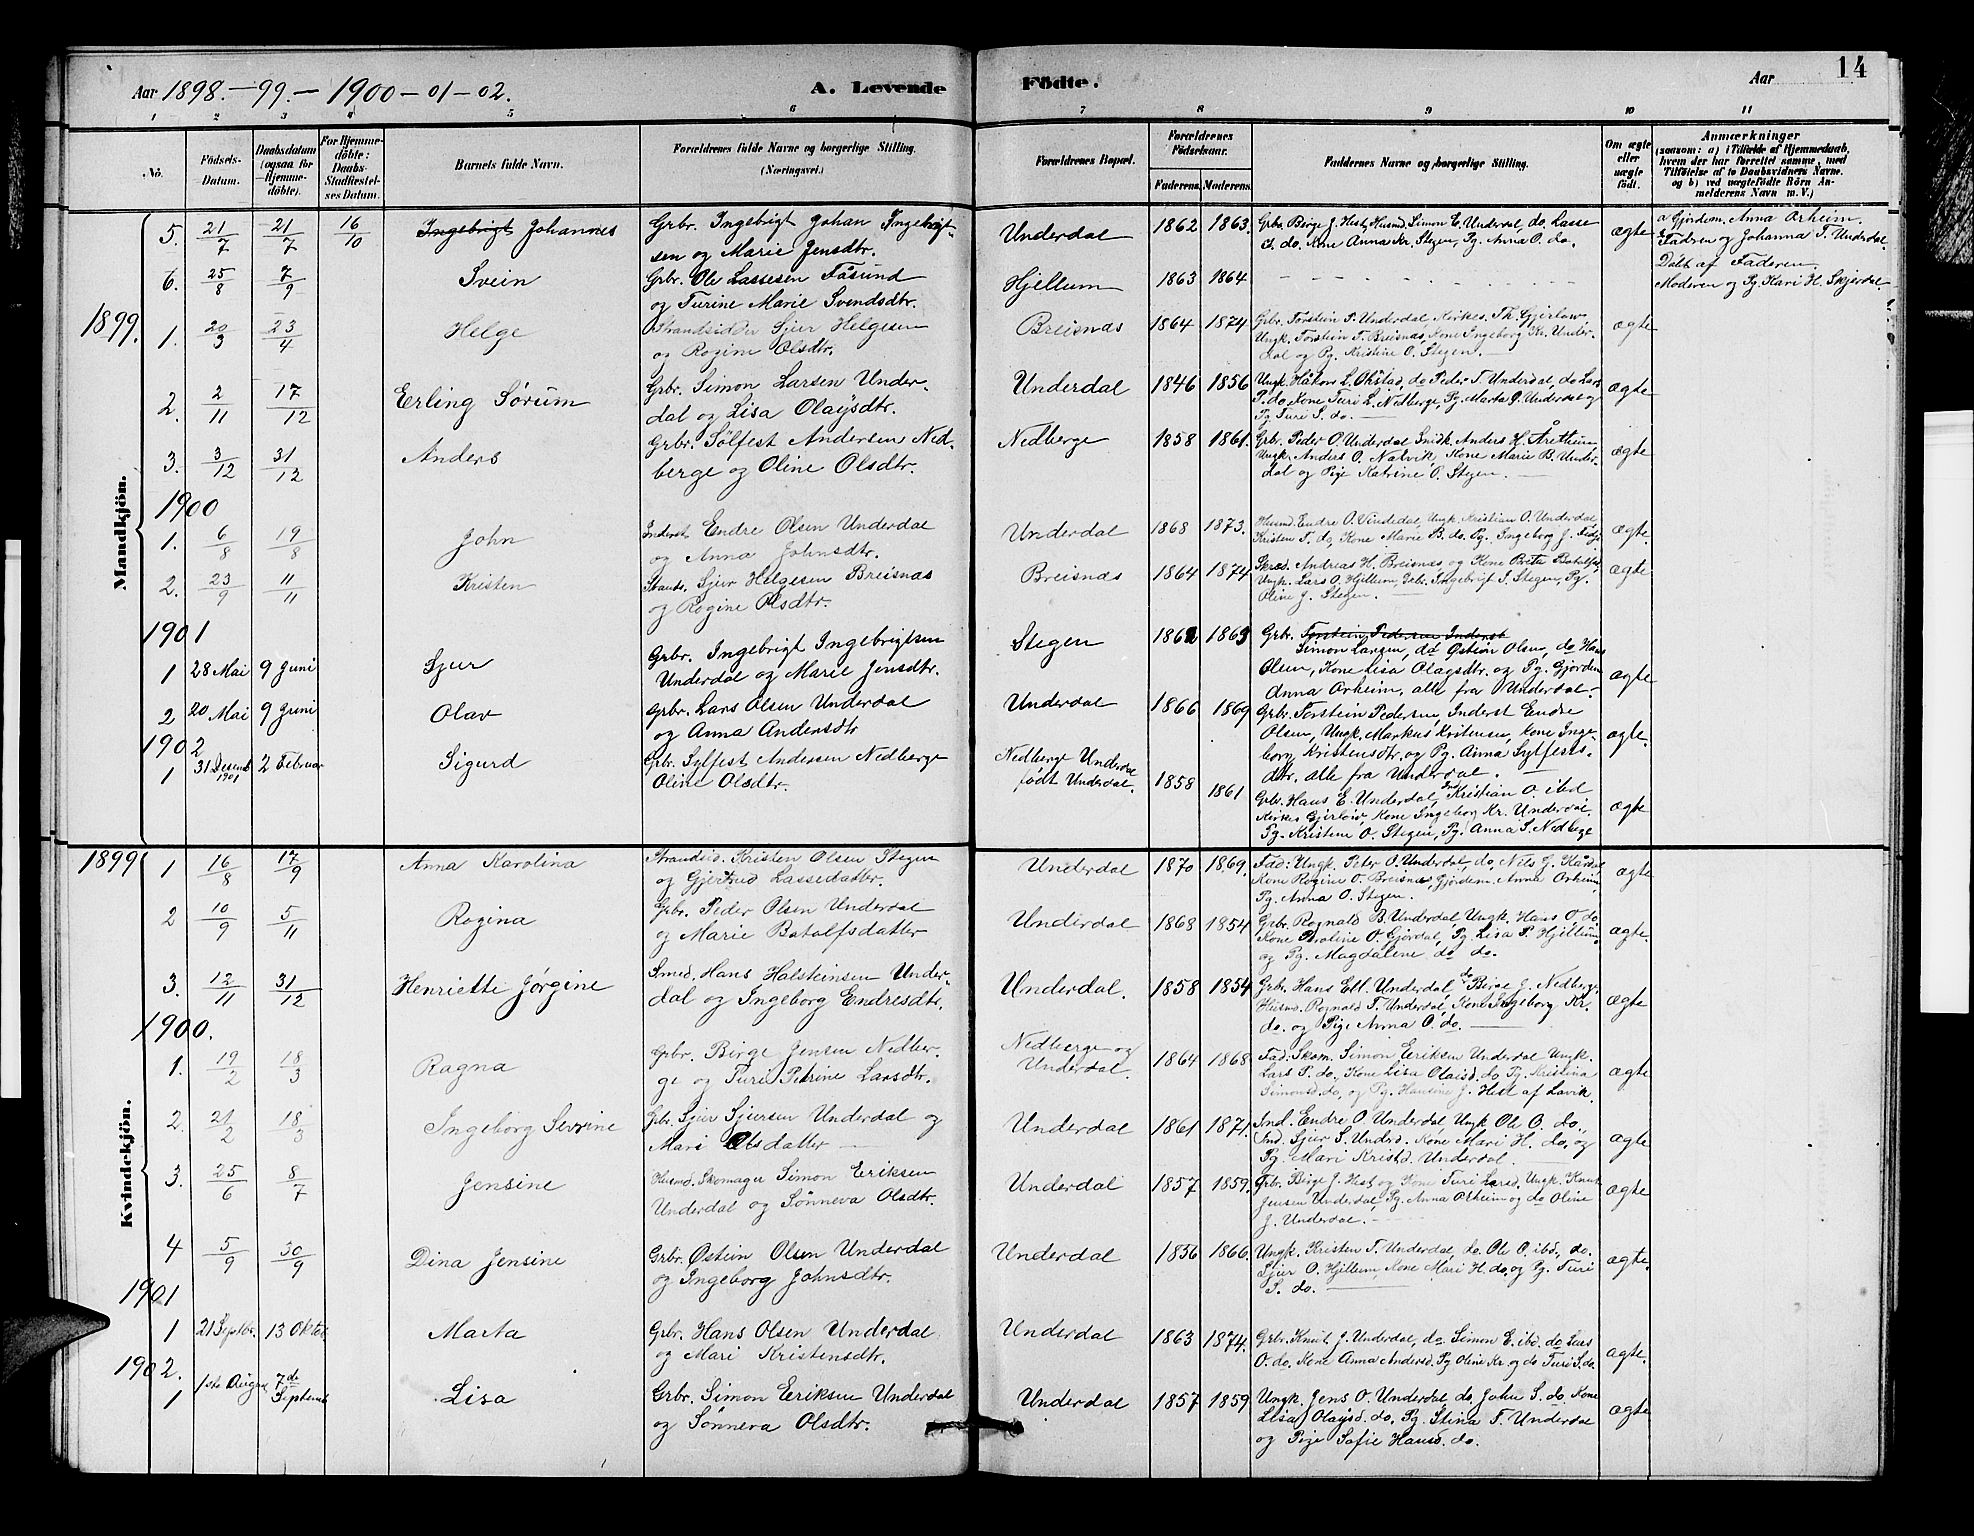 14
Aar 1898.-99.-1900-01-02.
A. Levende Födte.
Aar
1 2 3 4 5 6 7 8 9 10 11
No.
Födsels-Datum.
Daabsdatum (ogsaa for Hjemme-döbte).
For Hjemme-döbte: Daabs-Stadfæstel-ses Datum.
Barnets fulde Navn.
Forældrenes fulde Navne og borgerlige Stilling. (Næringsvei.)
Forældrenes Bopæl.
Forældrenes Födselsaar.
Faderens. Moderens.
Faddernes Navne og borgerlige Stilling.
Om ægte eller uægte födt.
Anmærkninger
(saasom: a) i Tilfælde af Hjemmedaab, hvem der har forrettet samme, med Tilföielse af to Daabsvidners Navne, og b) ved uægtefödte Börn An-melderens Navn m. V.)
Mandkjön.
5. 21/7 21/7 16/10 Ingebrigt Johannes
Grbr. Ingebrigt Johan Ingebrigt-
sen og Marie Jensdtr.
Underdal 1862 1863.
Grbr. Birge J. Hest, Husmd. Simon E. Underdal, do. Lasse
S. do. Kone Anna Kr. Stegen, Pg. Anna O. do.
ægte
a Gjordem. Anna Orheim.
Fadren og Johanna T. Underdal.
6. 25/8 7/9 Svein
Grbr. Ole Lassesen Fåsund
og Turine Marie Svendsdtr.
Hjellum 1863 1864
Døbt af Faderen.
Moderen og Pg. Kari H. Skjerdal
1899.
1. 20/3 23/4 Helge
Strandsidder Sjur Helgesen
og Rogine Olsdtr.
Breisnæs 1864 1874
Grbr. Torstein P. Underdal, Kirkes. Th. Gjerløw
Ungk. Torstein T. Breisnæs, Kone Ingeborg Kr. Under-
dal og Pg. Kristine O. Stegen.
ægte
2. 2/11 17/12 Erling Sørum
Grbr. Simon Larsen Under-
dal og Lisa Olaysdtr.
Underdal 1846 1856
Ungk. Håkon L. Ohstad, do Peder T. Underdal, do Lars
P. do, Kone Turi L. Nedberge, Pg. Marta O. Underdal og
Pg Turi S. do.
ægte
3. 3/12 31/12 Anders
Grbr. Sølfest Andersen Ned-
berge og Oline Olsdtr.
Nedberge 1858 1861.
Grb. Peder O. Underdal Snidk. Anders H. Åretun
Ungk. Anders O. Nalvik, Kone Marie B. Under-
dal og Pige Katrine O. Stegen.
ægte
1900
1. 6/8 19/8 John
Inderst Endre Olsen Underdal
og Anna Johnsdtr.
Underdal 1868 1873.
Husmd. Endre O. Vindedal, Ungk. Kristian O. Underdal,
Kristen T. do, Kone Marie B. do. Pg. Ingeborg J.
ægte.
2. 23/9 11/11 Kristen
Strands. Sjur Helgesen Breisnæs
og Rogine Olsdtr.
Breisnæs 1864 1874
Skræd. Andreas H. Breisnæs, og Kone Brita Batalfsd.
Ungk. Lars O. Hjellum, Grbr. Ingebrigt I. Stegen, Pg.
Oline J. Stegen.
ægte
1901
1 28 Mai 9 Juni Sjur
Grbr. Ingebrigt Ingebrigtsen
Underdal og Marie Jensdtr.
Stegen 1862 1863
Grbr. Torstein Pedersen Inderst
Simon Larsen, do Østein Olsen, do Hans
Olsen, Kone Lisa Olaysdtr. og Pg. Gjordem
Anna Orheim, alle fra Underdal.
ægte
2 20 Mai 9 Juni Olav
Grbr. Lars Olsen Underdal
og Anna Andersdtr
Underdal 1866 1869
Grbr. Torstein Pedersen, Inderst Endre
Olsen, Ungk. Markus Kristensen, Kone Inge-
borg Kristensdtr. og Pg. Anna Sylfests-
dtr. alle fra Underdal.
ægte.
1902
1 31 Desemb 1901 2 Februar Sigurd
Gbr. Sylfest Andersen Nedberge
Oline Olsdtr.
Nedberge Underdal
født Underdal. 1858 1861
Grbr. Hans E. Underdal, Kristian O. ibd
Kirkes Gjerløw, Kone Ingeborg Kr. Underdal
Pg. Kristene O. Stegen, Pg. Anna S. Nedberge
ægte
Kvindekjön.
1899
1 16/8 17/9 Anna Karolina
Strandsid. Kristen Olsen Stegen
og Gjertrud Lassedatter.
Underdal 1870 1869.
Fad: Ungk. Peter O. Underdal, do, Nils J.
Kone Rogine O. Breisnæs, Gjordem. Anna Orheim
Pg. Anna O. Stegen.
ægte
2 10/9 5/11 Rogina
Grbr. Peder Olsen Underdal
og Marie Batalfsdatter
Underdal 1868 1854
Grbr. Rognald B. Underdal, Ungk. Hans O. do,
Kone Paroline O. Gjørdal, Pg. Lisa P. Hjellum
og Pg. Magdalene do do.
ægte.
3. 12/11 31/12 Henriette Jørgine
Smed. Hans Halsteinsen Under-
dal og Ingeborg Endresdtr.
Underdal. 1858 1854
Grbr. Hans Ell. Underdal, do Birge J. Nedberg,
Husmd. Rognald T. Underdal, Kone Ingeborg Kr.
do. og Pige Anna O. do.
ægte
1900.
1. 19/2 18/3 Ragna
Grbr. Birge Jensen Nedber-
ge og Turi Petrine Larsdtr.
Nedberge og
Underdal. 1864 1868
Fad: Skom. Simon Eeriksen Underdal Ungk.
Lars P. do., Kone Lisa Olaisd. do, Pg. Kristina
Simonsd. do, og Pg. Hansine J. Hest af Lavik.
ægte
2. 21/2 18/3 Ingeborg Sevrine
Gbr. Sjur Sjursen Underdal og
Mari Olsdatter
Underdal 1861 1871.
Ind. Endre O. Underdal, Ungk Ole O. do.,
Ind. Sjur S. Underd. Kone Mari H. do, og
Pg. Mari Kristd. Underdal.
ægte
3. 25/6 8/7 Jensine
Husmd. Skomager Simon Eriksen
Underdal og Sønneva Olsdtr.
Underdal 1857 1859.
Grbr. Birge J. Hest og Kone Turi Larsd. Ungk. Knut
Jensen Underdal, Pg. Anna Orheim og do Oline
J. Underdal.
ægte
4 5/9 30/9 Dina Jensine
Grbr. Østein Olsen Underdal
og Ingeborg Johnsdtr.
Underdal 1856 1866.
Ungk. Kristen T. Underdal, do. Ole O. ibd., do.
Sjur O. Hjellum, Kone Mari H. do, og Pg. Turi
S. do.
ægte.
1901
1 21 Septbr. 13 Oktob Marta
Grbr. Hans Olsen Underdal
og Mari Kristensdtr.
Underdal 1863 1874.
Grbr. Knut J. Underdal, do Simon E. ibd. do Lars
O. do. Kone Anna Andersd. Pg Oline Kr og do Turi S. do.
ægte.
1902.
1 1ste August 7de Septemb Lisa
Grbr. Simon Eeriksen Underdal
og Sønneva Olsdtr.
Underdal 1857 1859
Ungk. Jens O. Underdal, do. John S. do. Kone
Lisa Olaysd. do, Pg. Stina T. Underdal
og Pige Sofie Hansd. do.
ægte